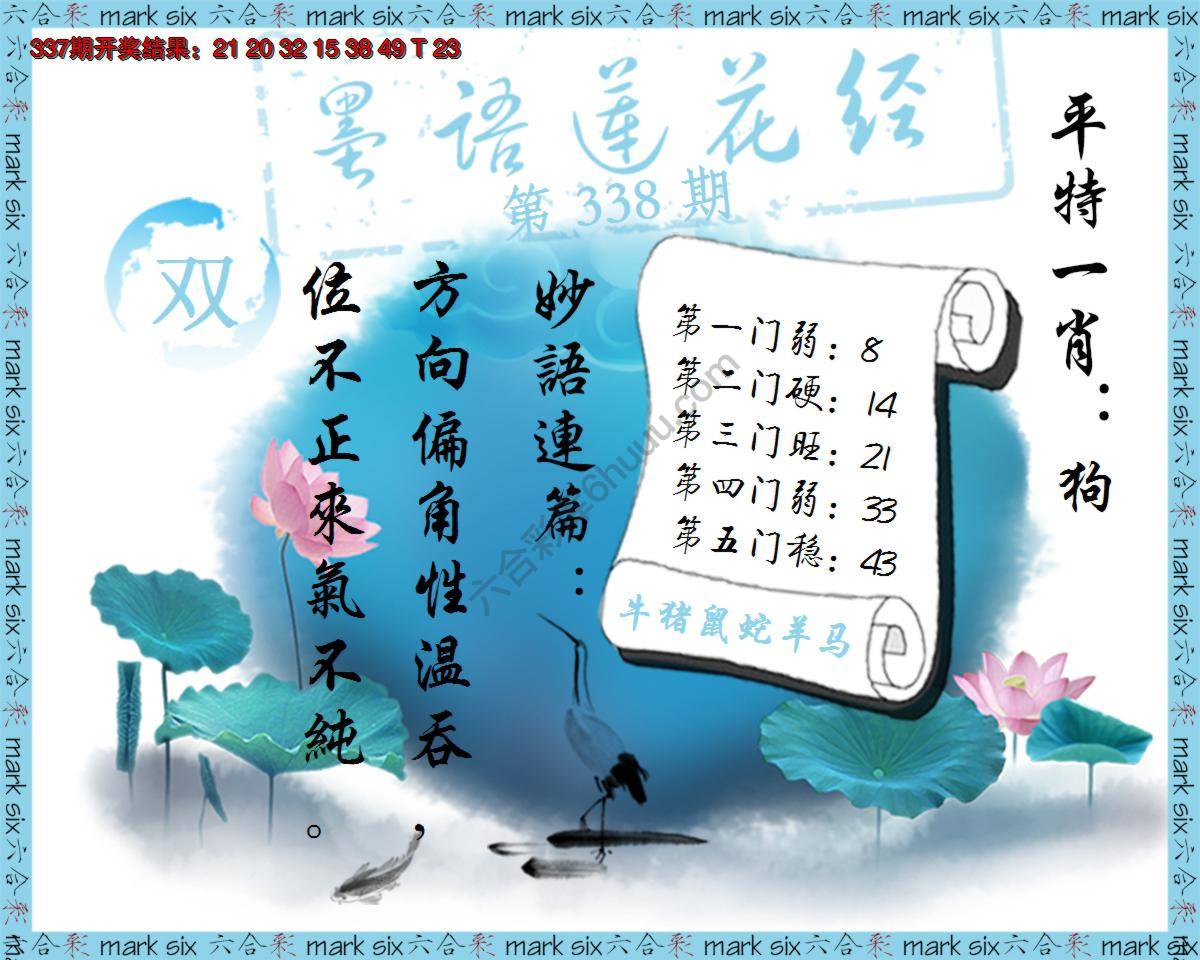 六合彩 mark six 六合彩 mark six 六合彩 mark six 六合彩 mark six 六合彩 mark six 六合彩 mark six
337期开奖结果：21 20 32 15 38 49 T 23
墨语莲花经
第 338 期
双
平特一肖：狗
妙語連篇：
方向偏角性温吞，
位不正來氣不純。
第一门弱：8
第二门硬：14
第三门旺：21
第四门弱：33
第五门稳：43
牛猪鼠蛇羊马
六合彩 mark six 六合彩 mark six 六合彩 mark six 六合彩 mark six 六合彩 mark six 六合彩 mark six